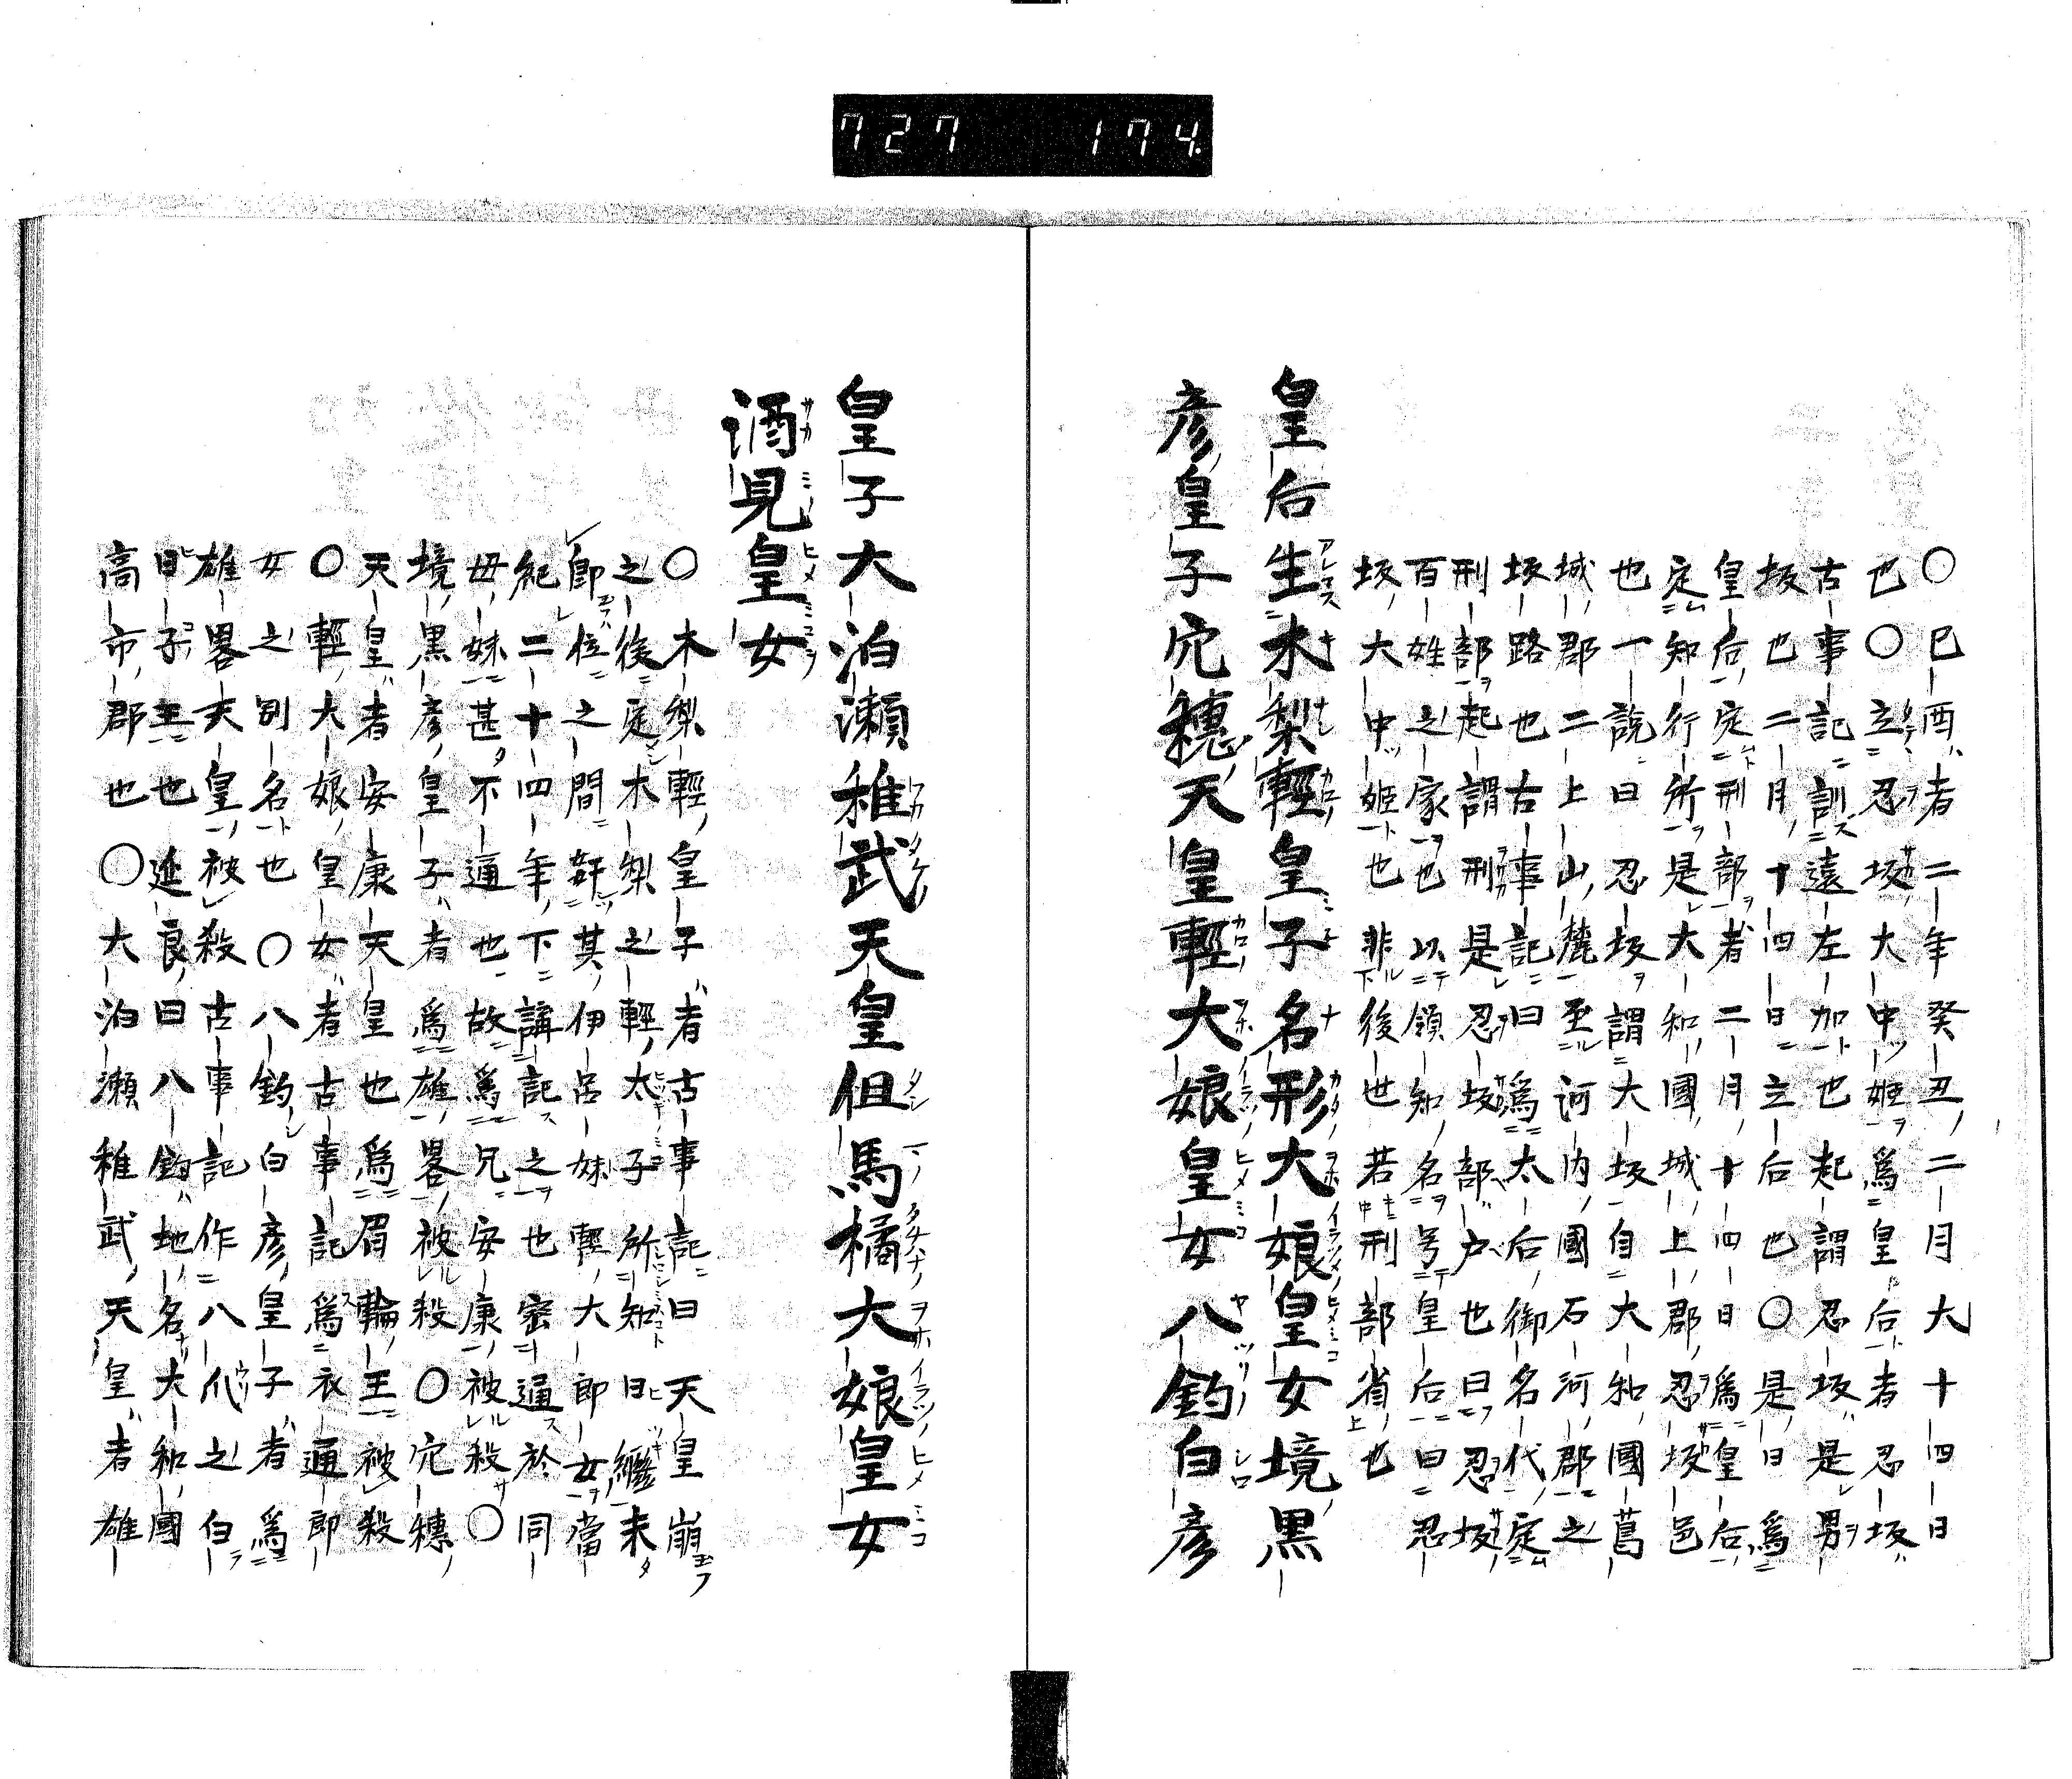 727 174.
〇巳酉者二年癸丑二月大十四日
也〇立忍坂大中姫爲皇后者忍坂
古事記訓遠左加也起謂忍坂是男
坂也二月十四日立后也〇是日爲
皇后定刑部者二月十四日爲皇后
定知行所是大和國城上郡忍坂邑
也一說曰忍坂謂大坂自大和國葛
城郡二上山麓至河内國石河郡之
坂路也古事記曰爲太后御名代定
刑部起謂刑是忍坂部戸也曰忍坂
百姓之家也以領知名号皇后曰忍
坂大中姫也非後世若刑部省也
皇后生木梨輕皇子名形大娘皇女境黒
彦皇子穴穗天皇輕大娘皇女八釣白彦
皇子大泊瀬稚武天皇但馬橘大娘皇女
酒見皇女
〇木梨輕皇子者古事記曰天皇崩
之後定木梨之輕太子所知日繼未
卽位之間奸其伊呂妹輕大郎女當
紀二十四年下講記之也密通於同
毋妹甚不通也故爲兄安康被殺〇
境黒彦皇子者爲雄畧被殺〇穴穗
天皇者安康天皇也爲眉輪王被殺
〇輕大娘皇女者古事記爲衣通郎
女之別名也〇八釣白彦皇子者爲
雄畧天皇被殺古事記作八瓜之白
日子王也延良曰八釣地名大和國
高市郡也〇大泊瀬稚武天皇者雄